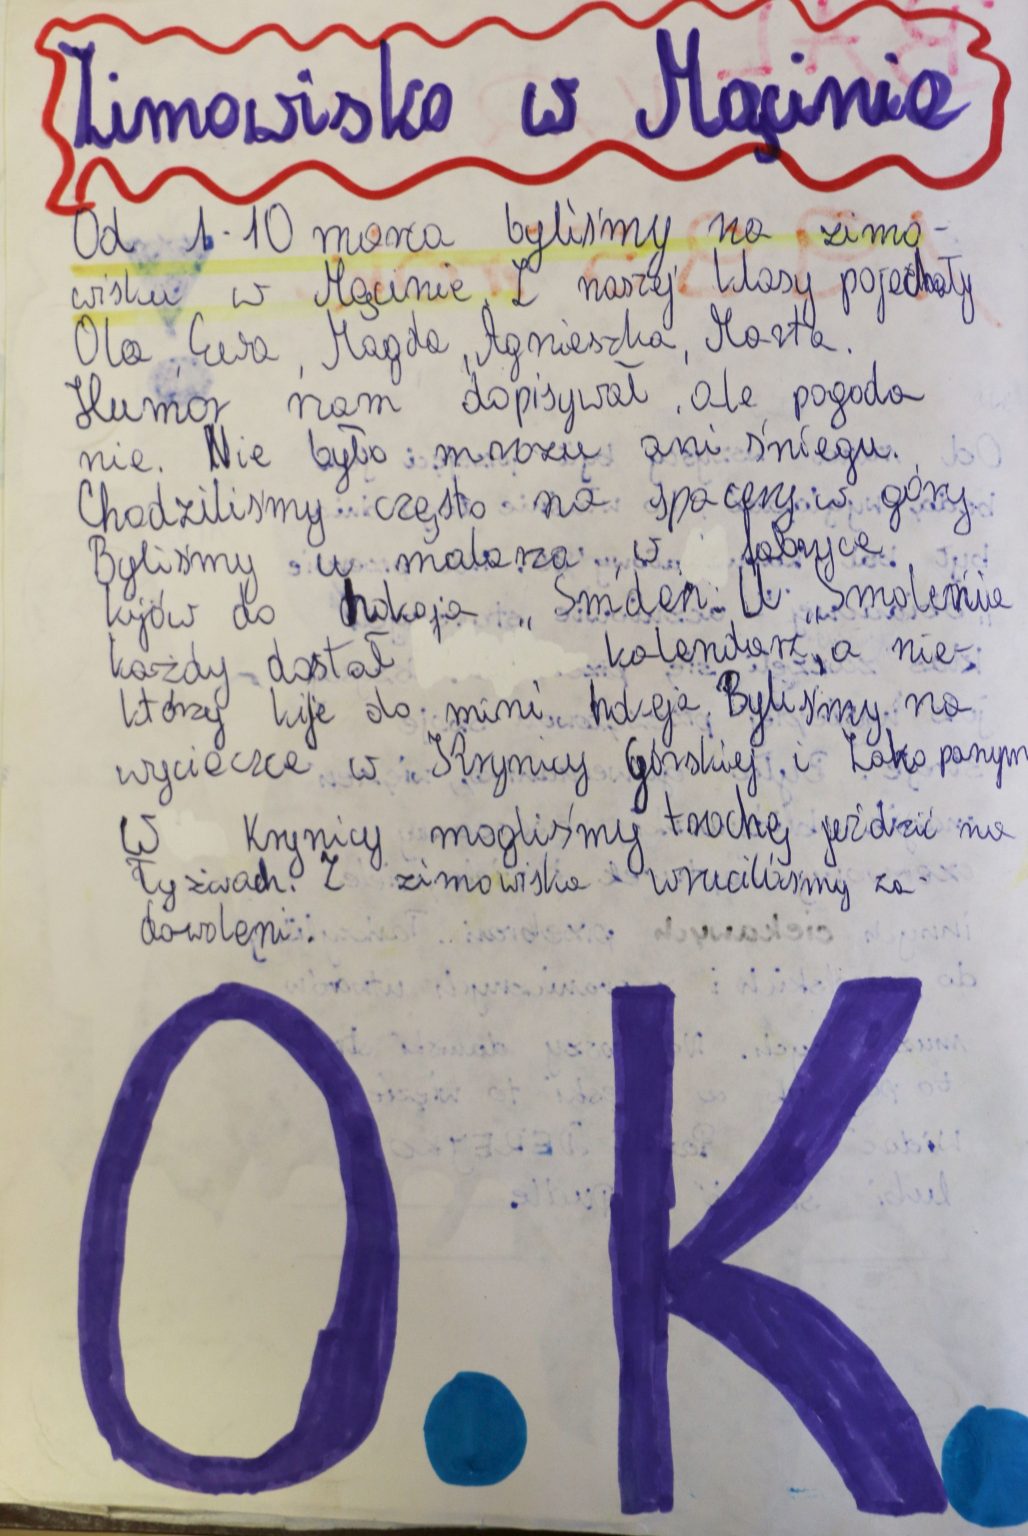 Zimowisko w Męcinie
Od 1-10 marca byliśmy na zimo-
wisku w Męcinie. Z naszej klasy pojechały
Ola, Ewa, Magda, Agnieszka, Marta.
Humor nam dopisywał, ale pogoda
nie. Nie było mrozu ani śniegu.
Chodziliśmy często na spacery w góry
Byliśmy u malarza, w fabryce
kijów do hokeja „Smoleń". U „Smolenia
każdy dostał kalendarz, a nie-
którzy kije do mini hokeja. Byliśmy na
wycieczce w Krynicy Górskiej i Zakopanym
W Krynicy mogliśmy trochę jeździć na
łyżwach. Z zimowiska wróciliśmy za-
dowoleni.
O.K.